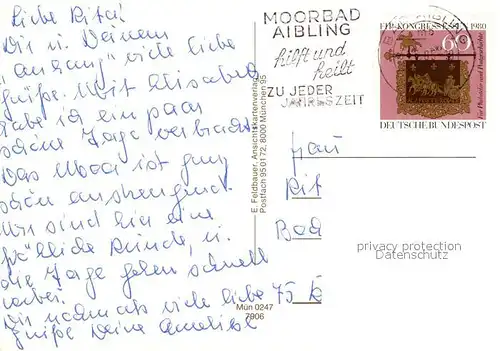 Liebe Rita!
Dir u. Deinem
"Anhang" viele liebe
Grüße. Mit Elisabeth
habe ich ein paar
schöne Tage verbracht.
Das Moor ist ganz
schön anstrengend.
Wir sind hier eine
fröhliche Runde, u.
die Tage gehen schnell
vorbei.
Dir nochmals viele liebe
Grüße Deine
E. Feldbauer, Ansichtskartenverlag
Postfach 950172, 8000 München 95
Mün 0247
7906
MOORBAD
AIBLING
hilft und
heilt
ZU JEDER
JAHRESZEIT
FIP-KONGRESS ESSEN 1980
60
Für Philatelie und Postgeschichte
DEUTSCHE BUNDESPOST
Frau
Rit
Bad
75 K
privacy protection
Datenschutz